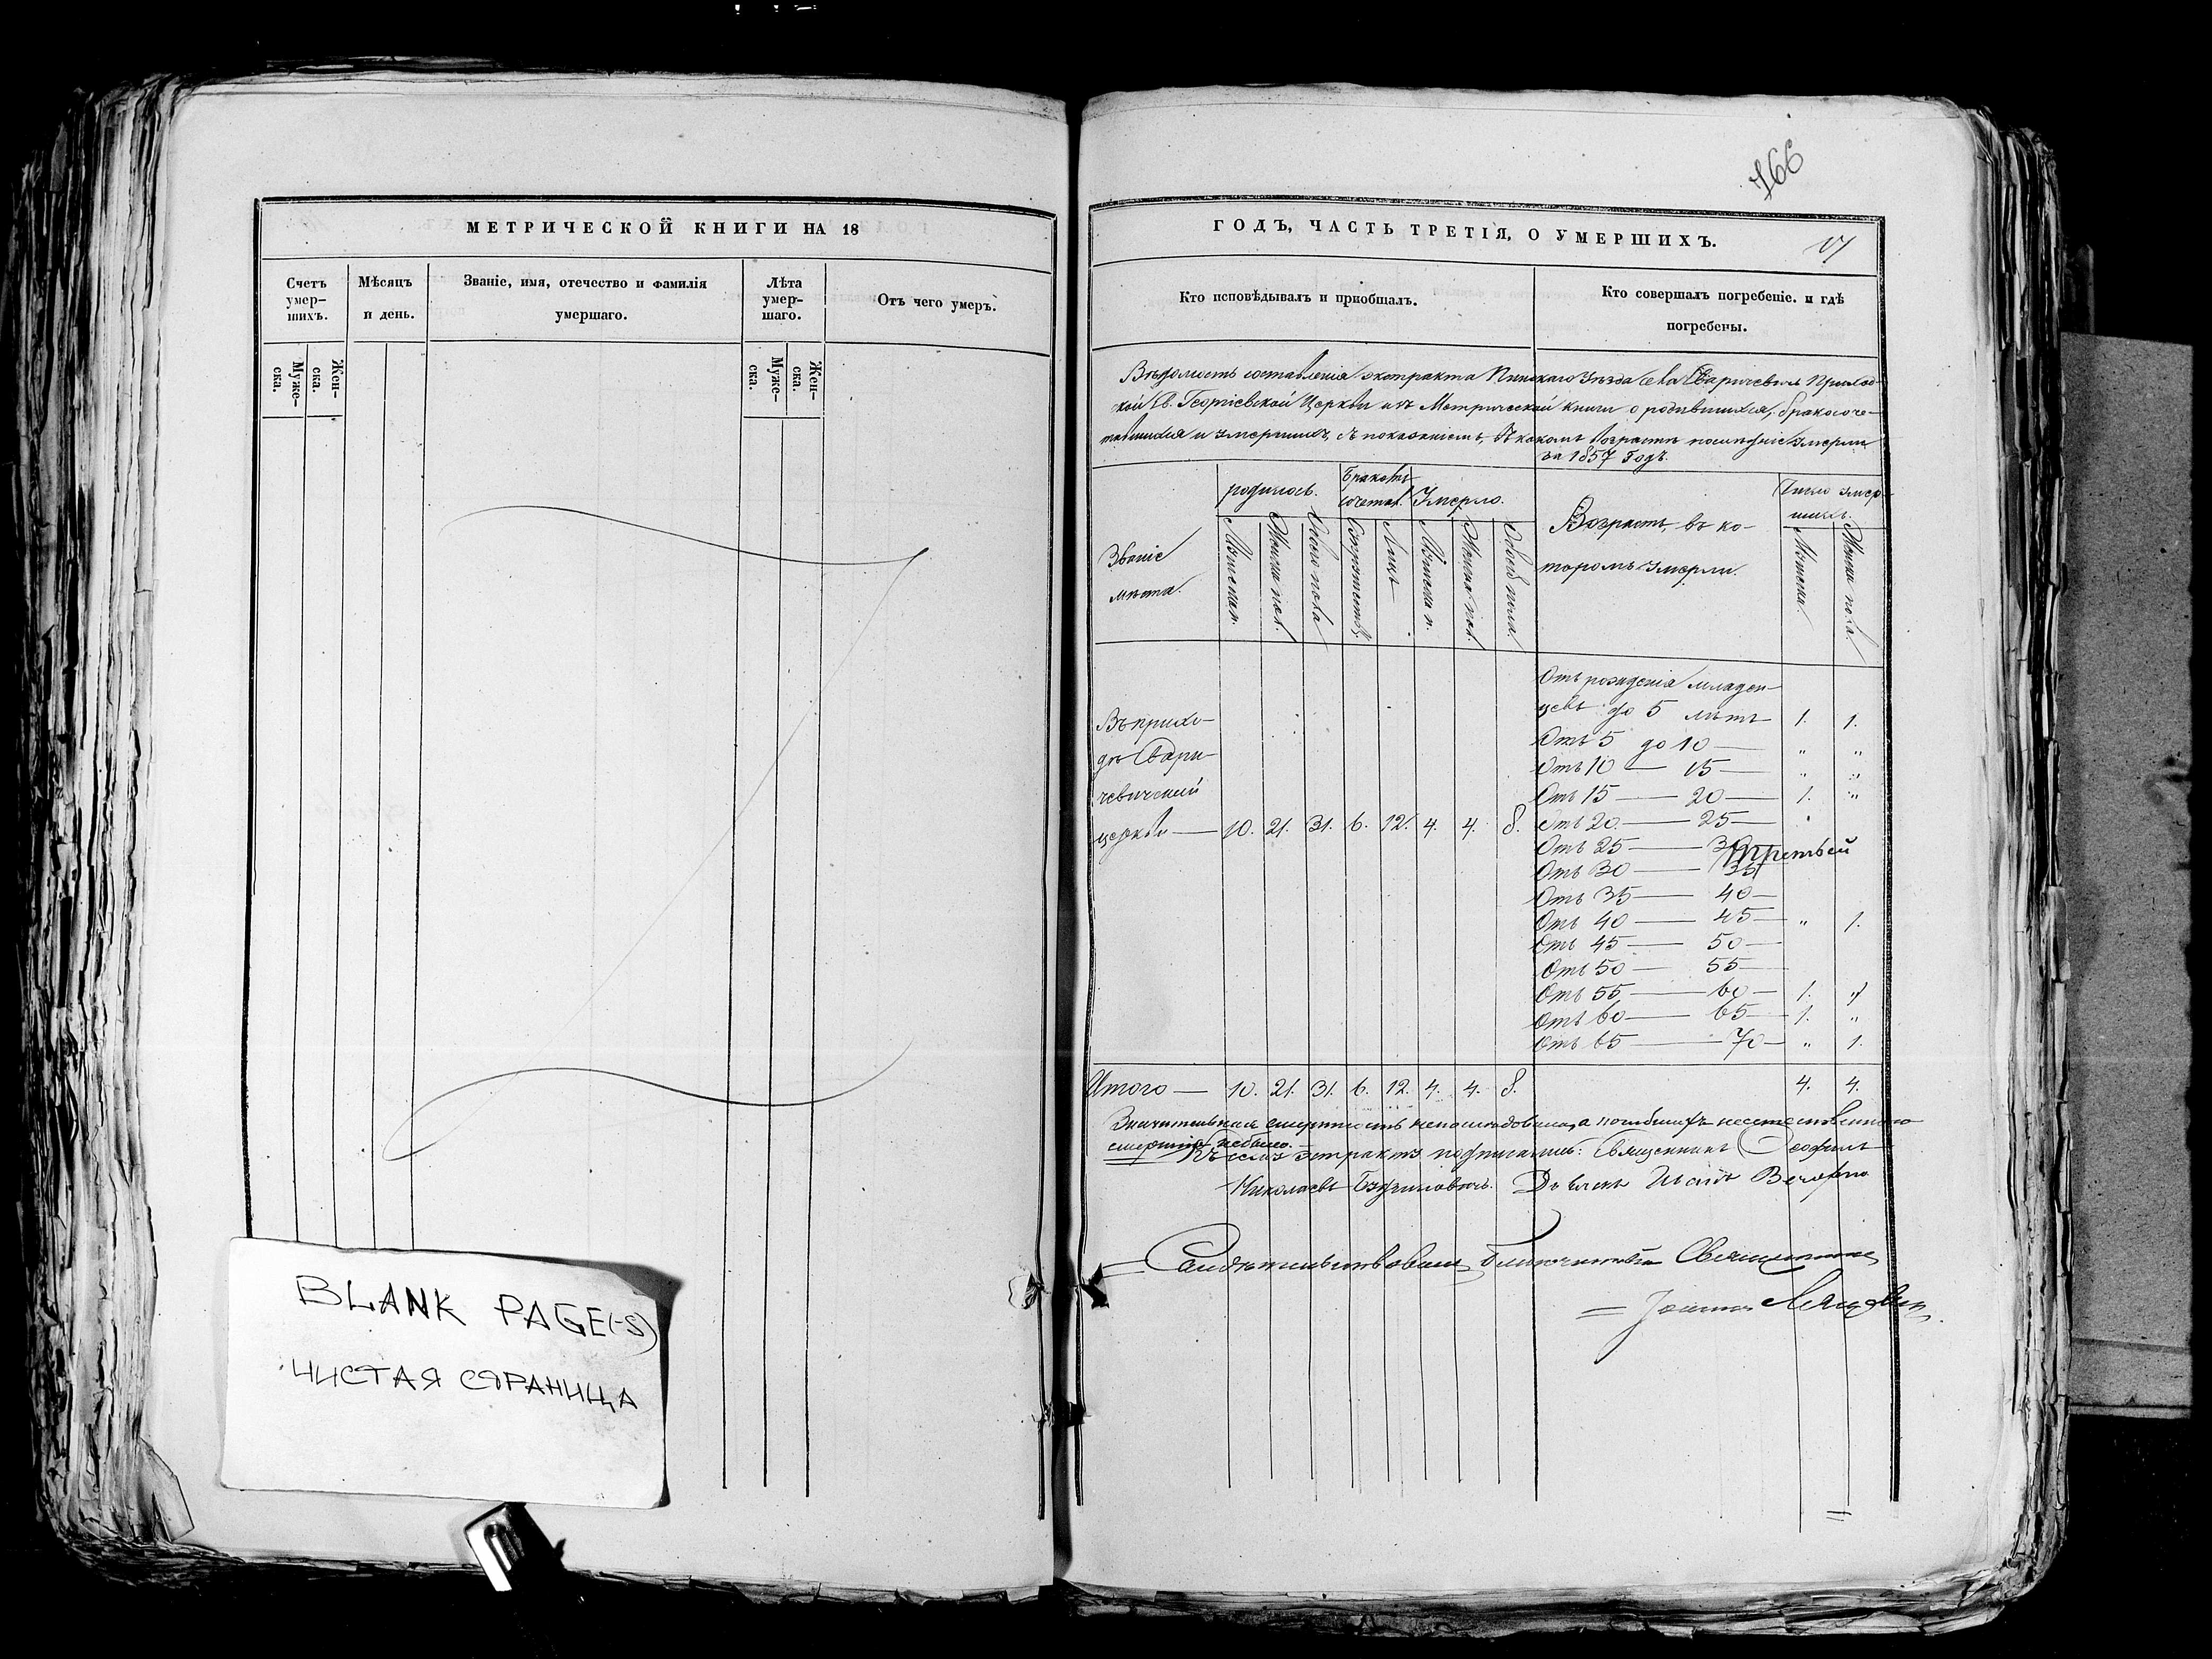 МЕТРИЧЕСКОЙ КНИГИ НА 18
Счетъ умер-шихъ.
Мѣсяцъ и день.
Званіе, имя, отечество и фамилія умершаго.
Лѣта умер-шаго.
Отъ чего умеръ.
Муже-ска.
Жен-ска.
Муже-ска.
Жен-ска.
BLANK PAGE(-S)
ЧИСТАЯ СТРАНИЦА
466
ГОДЪ, ЧАСТЬ ТРЕТІЯ, О УМЕРШИХЪ.
Кто исповѣдывалъ и пріобщалъ.
Кто совершалъ погребеніе. и гдѣ погребены.
Вѣдомость составленія экстракта Пинскаго Уѣзда села Сваричевичъ Приход-
ской Св. Георгіевской Церкви изъ Метрической книги о родившихся, бракосоче-
тавшихся и умершихъ, съ показаніемъ, въ какомъ возрастѣ послѣдніе умерли
за 1857 Годъ.
Званіе мѣста.
родилось.
Бракомъ сочетал.
Умерло.
Возрастъ, въ ко-
торомъ умерли.
Число умер-
шихъ.
Мужеска п.
Женска пол.
Обоего пола
Супружествъ
Лицъ
Мужеска п.
Женска пол.
Обоего пола
Мужеска
Женска пола.
Отъ рожденія младен-
цевъ до 5 лѣтъ 1. 1.
Отъ 5 до 10 — „ „
Отъ 10 — 15 — „ „
Отъ 15 — 20 — 1. „
Въ прихо-
дѣ Свари-
чевичской
церкви — 10. 21. 31. 6. 12. 4. 4. 8.
Отъ 20 — 25 —
Отъ 25 — 30
Третьей
Отъ 30 — 35
Отъ 35 — 40 —
Отъ 40 — 45 — „ 1.
Отъ 45 — 50 —
Отъ 50 — 55 —
Отъ 55 — 60 — 1. „
Отъ 60 — 65 — 1. „
Отъ 65 — 70 — „ 1.
Итого — 10. 21. 31. 6. 12. 4. 4. 8. 4. 4.
Значительная смертность непослѣдовала, а погибшихъ неестественною
смертію небыло.
Къ сему экстракту подписались: Священникъ Ѳеофилъ
Николаевъ Дьячекъ Иванъ
Свидѣтельствовалъ Благочинный Священникъ
= Іоаннъ